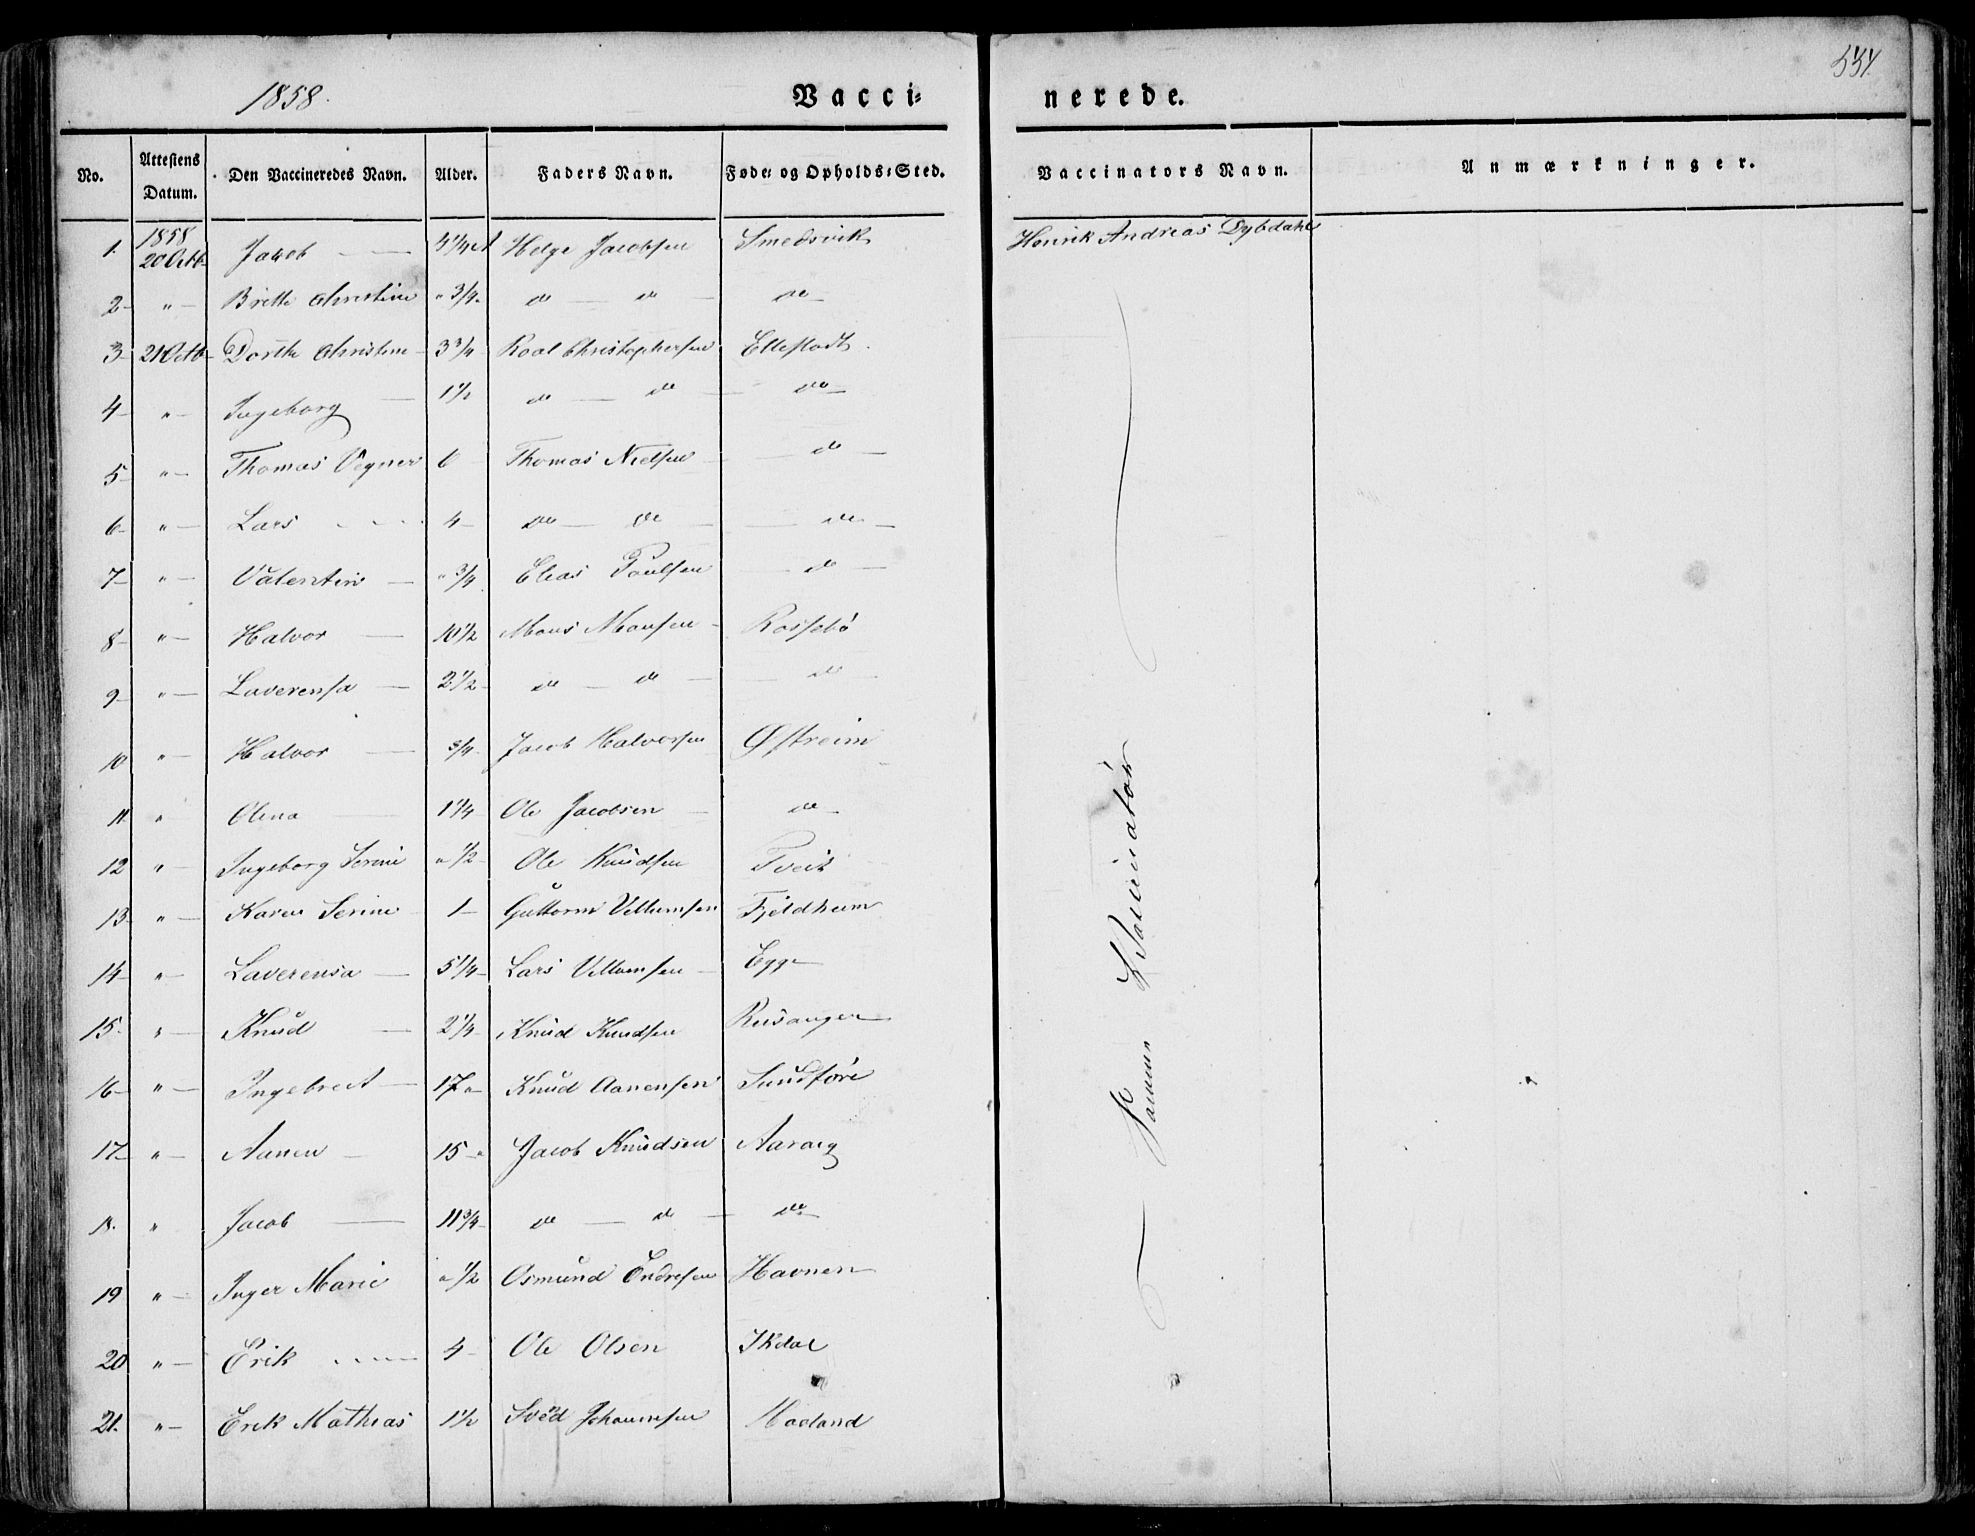 1858.
Vacci=
nerede.
554
No. Attestens Datum. Den Vaccineredes Navn. Alder. Faders Navn. Føde= og Opholds=Sted. Vaccinators Navn. Anmærkninger.
1. 1858 20 Octb- Jacob 4 1/4 Helge Jacobsen Smedsvik Henrik Andreas Dybdahl
2- " - Brithe Christine " 3/4- do - do - do -
3- 21 Octb- Dorthe Christine - 3 3/4 Roal Christophersen Ellestadt
4- " - Ingeborg - 1 1/2 do - do - do -
5- " - Thomas Vegner 6 Thomas Nielsen - do -
6- " - Lars - 4- do - do - do -
7- " - Valentin - " 3/4 Elias Poulsen - do -
8- " - Halvor - 10 1/2 Mons Monsen - Rossebø
9- " - Laverensa - 2 1/2- do - do - do -
10 " - Halvor - 3/4- Jacob Halvorsen Østreim
11. " Olena - 1 1/4 Ole Jacobsen - do -
12 " - Ingeborg Serine " 1/2- Ole Knudsen Tveit
13- " - Karen Serine 1- Guttorm Villumsen Fjeldheim
14- " - Laverensa - 5 1/4- Lars Villumsen - Egge
15. " - Knud - 2 1/4- Knud Knudsen Risanger
16- " - Ingebret - 17 " Knud Aanensen Sundføre
17- " - Aanen - 15 - " Jacob Knudsen Aaræg
18. " Jacob - 11 3/4- do - do - do -
19 " - Inger Marie " 1/2 Osmund Endresen Havnen
20 " - Erik - 4- Ole Olsen Ikdal
21. " - Erik Mathias 1 1/2 Svend Johannesen Haaland
Samme Vaccinatør